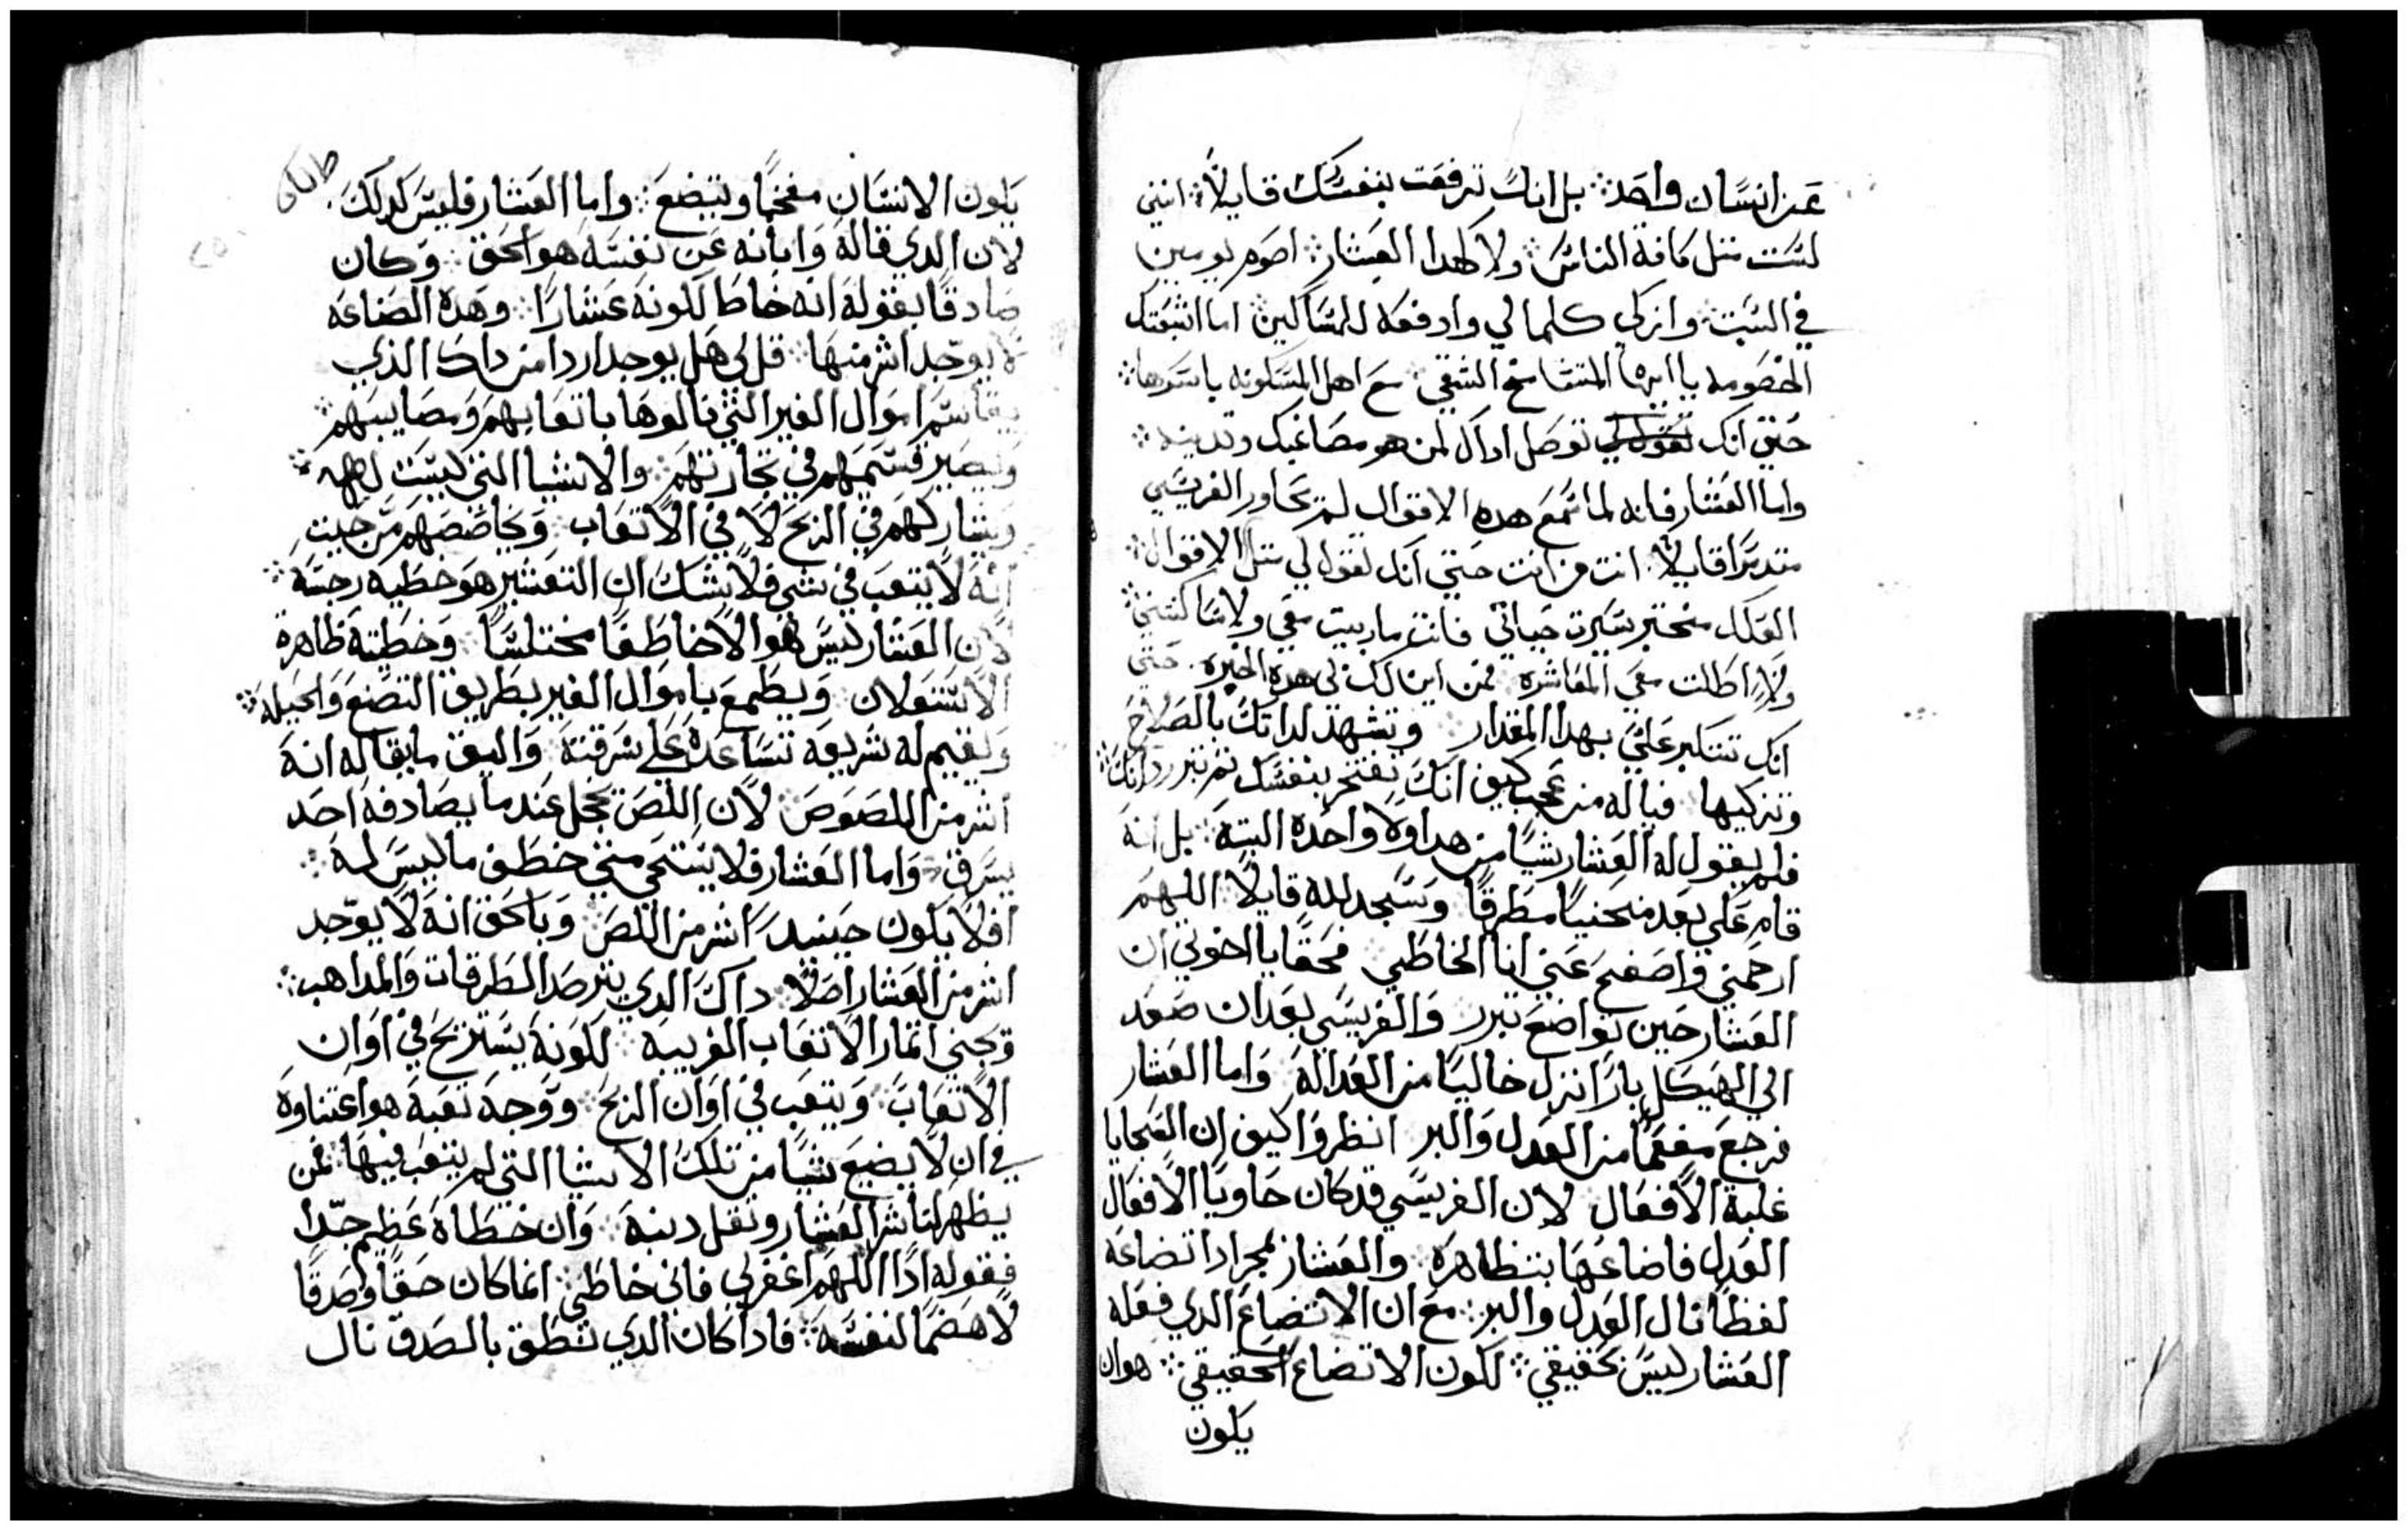 عن انسان واحد ∴ بل انك ترفعت بنفسك قايلاً ∴ انني
لست مثل كافة الناس ∴ ولا كهدا العشار ∴ اصوم يومين
في السبت ∴ وازكي كلما لي وادفعه للمساكين ∴ اما اشبعتك
الخصومه يا ايها المتشامخ الشقي ∴ مع اهل المسكونه باسرها ∴
حتي انك توصل ادال لمن هو مصاغبك وتدينه ∴
واما العشار فانه لما سمع هده الاقوال لم يحاور الفريسي
متدمراً قايلاً ∴ انت من انت حتي انك تقول لي مثل الاقوال ∴
العلك مختبر سيرت حياتي فانت ماربيت معي ولا ساكنتني ∴
ولا اطالت معي المعاشره ∴ فمن اين لك في هده الخبره . حتي
انك تتكبر علي بهدا المقدار ∴ وتشهد لداتك بالصلاح
وتزكيها ∴ فياله من عجب كيف انك تفتخر بنفسك ثم تبرر داتك ∴
فلم يقول له العشار شياً من هدا ولا واحده البتة ∴ بل انه
قام علي بعد منحنياً مطرقاً ∴ وسجد لله قايلاً ∴ اللهم
ارحمني واصفح عني انا الخاطي ∴ فحقاً يا اخوتي ان
العشار حين تواضع تبرر ∴ والفريسي بعد ان صعد
الي الهيكل باراً نزل خالياً من العدالة ∴ واما العشار
فرجع مفعماً من العدل والبر ∴ انظروا كيف ان السجايا
غلبة الافعال ∴ لان الفريسي قد كان حاوياً الافعال
العدل فاضاعها بتظاهره ∴ والعشار بمجرد اتضاعه
لفظاً نال العدل والبر ∴ مع ان الاتضاع الدي فعله
العشار ليس بحقيقي ∴ لكون الاتضاع الحقيقي ∴ هو ان
يكون
يكون الانسان مفخماً ويتضع ∴ واما العشار فليس كدلك ∴
لان الدي قاله وابانه عن نفسه هو الحق ∴ وكان
صادقاً بقوله انه خاطٍ لكونه عشاراً ∴ وهده الصناعه
لا يوجد اشر منها ∴ قل لي هل يوجد اردا من داك الذي
يقاسم اموال الغير التي نالوها باتعابهم ومصايبهم ∴
ويصير قسيمهم في تجارتهم ∴ والاشيا التي ليست له
ويشاركهم في الربح لا في الاتعاب ∴ ويحاصصهم من حيث
انه لا يتعب في شي فلا شك ان التعشير هو خطيه رجسه ∴
لان العشار ليس هو الا خاطفاً مختلساً ∴ وخطيته ظاهرة
ويطمع باموال الغير بطريق التصنع والحيله ∴
ويقيم له شريعه تساعده علي سرقته ∴ واليق ما يقاله انه
اشر من اللصوص ∴ لان اللص يخجل عندما يصادفه احد
يسرق ∴ واما العشار فلا يستحي متي خطف ما ليس له ∴
افلا يكون حينيد اشر من اللص ∴ وبالحق انه لا يوجد
اشر من العشار اصلاً ∴ داك الدي يترصد الطرقات والمداهب ∴
ويجني اثمار الاتعاب الغريبه ∴ لكونه يستريح في اوان
الاتعاب ∴ ويتعب في اوان الربح ∴ ووجه تعبه هو اعتناوه
في ان لا يضيع شياً من تلك الاشيا التي لم يتعب فيها ∴ فمن
يظهر لنا شر العشار وثقل دينه ∴ وان خطاه عظيم جداً
فقوله اداً اللهم اغفر لي فاني خاطي ∴ انما كان حقاً وصدقاً
لا هضماً لنفسه ∴ فادا كان الدي نطق بالصدق نال